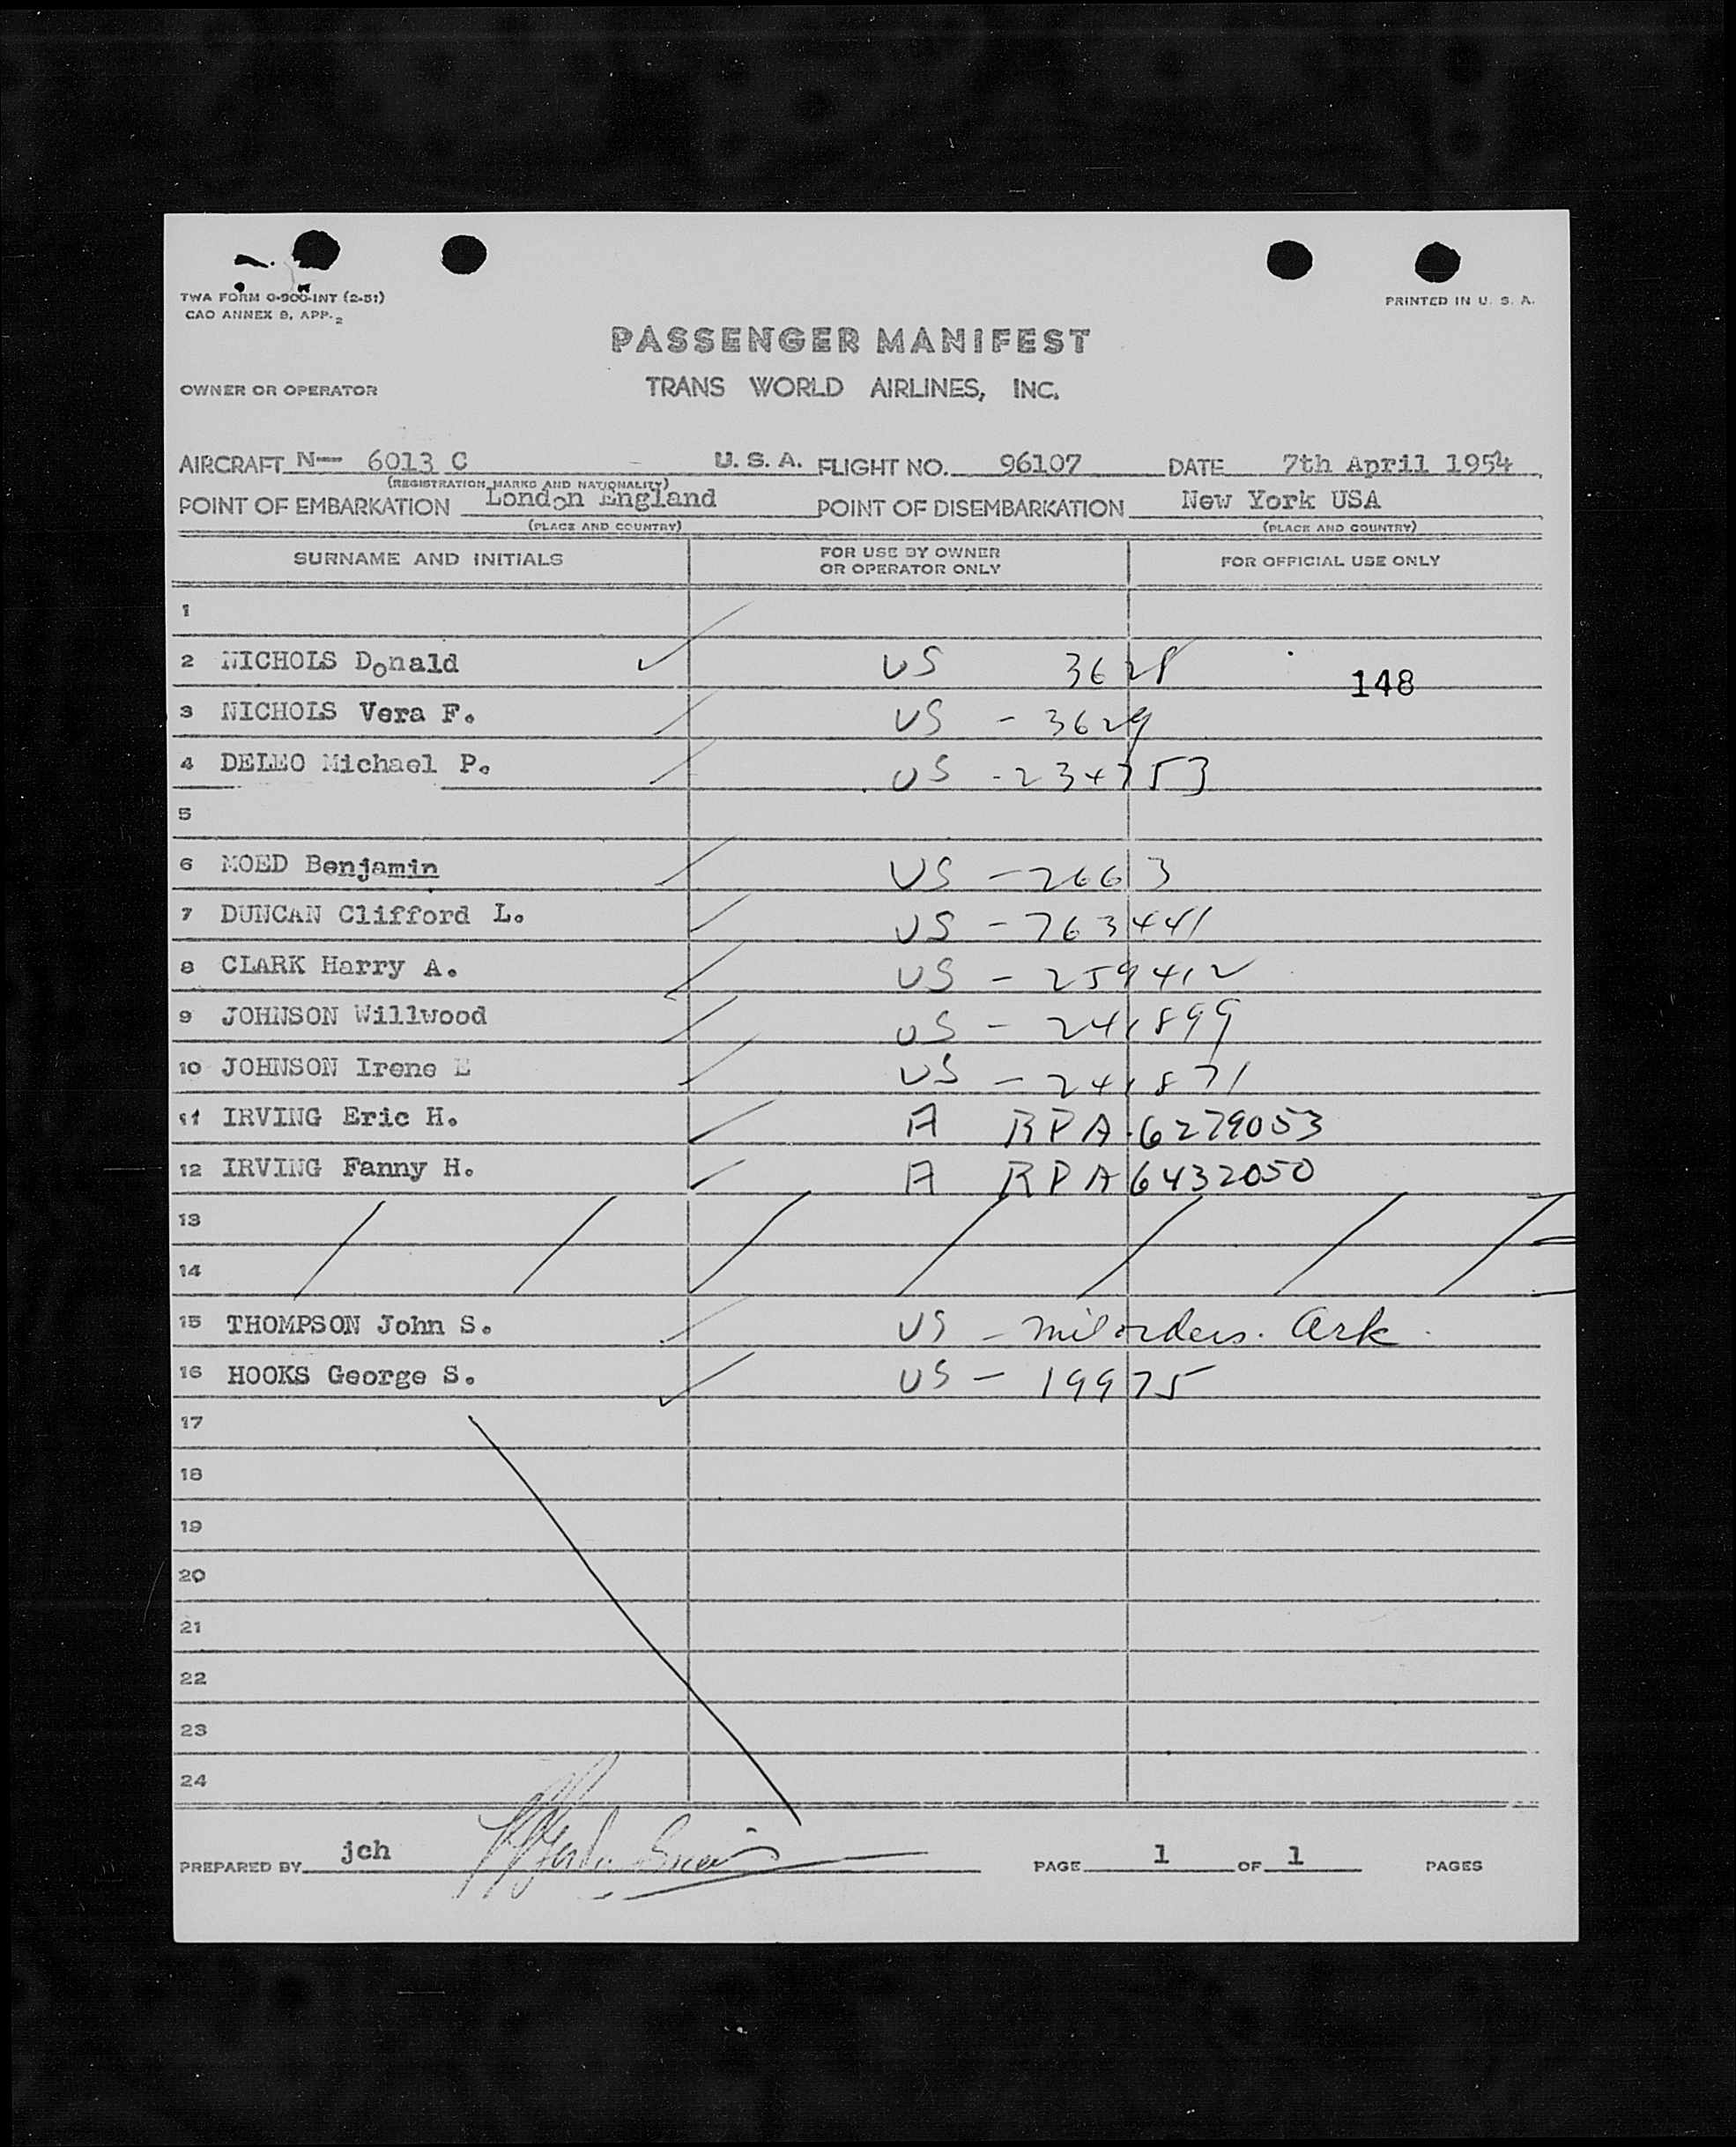 TWA FORM O-900-INT (2-51)
CAO ANNEX 9, APP. 2
PRINTED IN U. S. A.
PASSENGER MANIFEST
OWNER OR OPERATOR TRANS WORLD AIRLINES, INC.
AIRCRAFT N— 6013 C U. S. A. FLIGHT NO. 96107 DATE 7th April 1954
(REGISTRATION MARKS AND NATIONALITY)
POINT OF EMBARKATION London England POINT OF DISEMBARKATION New York USA
(PLACE AND COUNTRY) (PLACE AND COUNTRY)
SURNAME AND INITIALS FOR USE BY OWNER OR OPERATOR ONLY FOR OFFICIAL USE ONLY
1
2 NICHOLS Donald US 3628 148
3 NICHOLS Vera F. US - 3629
4 DELEO Michael P. US - 234753
5
6 MOED Benjamin US - 26613
7 DUNCAN Clifford L. US - 763441
8 CLARK Harry A. US - 259412
9 JOHNSON Willwood US - 241899
10 JOHNSON Irene E US - 241871
11 IRVING Eric H. A RPA 6279053
12 IRVING Fanny H. A RPA 6432050
13
14
15 THOMPSON John S. US - mil orders. Ark
16 HOOKS George S. US - 19975
17
18
19
20
21
22
23
24
PREPARED BY jch PAGE 1 OF 1 PAGES